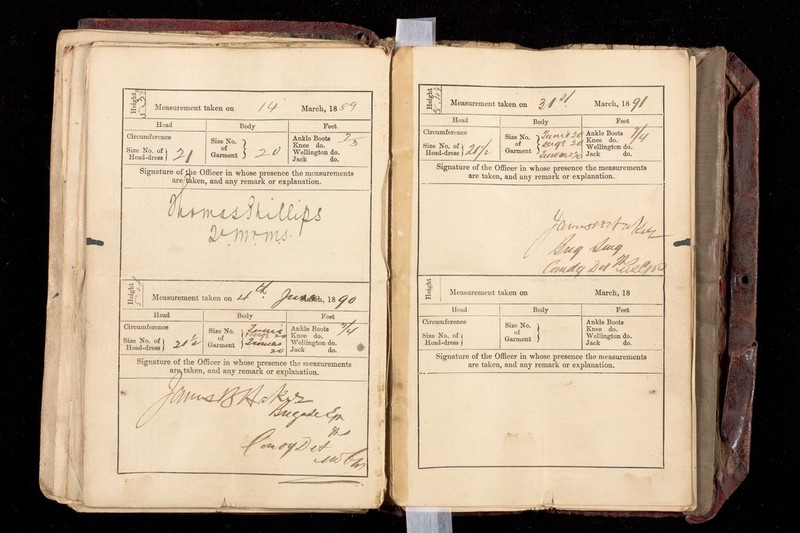 Height
Measurement taken on 14 March, 1889
Head Body Feet
Circumference
Size No. of Head-dress } 21
Size No. of Garment } 20
Ankle Boots
Knee do.
Wellington do.
Jack do.
Signature of the Officer in whose presence the measurements
are taken, and any remark or explanation.
Thomas Phillips
Height
Measurement taken on 4th June March, 1890
Head Body Feet
Circumference
Size No. of Head-dress }
Size No. of Garment } Tunic
20
Ankle Boots 7/4
Knee do.
Wellington do.
Jack do.
Signature of the Officer in whose presence the measurements
are taken, and any remark or explanation.
James
Brigade
Height
Measurement taken on 31st March, 1891
Head Body Feet
Circumference
Size No. of Head-dress } 21 1/2
Size No. of Garment } Tunic 20
20
20
Ankle Boots 7/4
Knee do.
Wellington do.
Jack do.
Signature of the Officer in whose presence the measurements
are taken, and any remark or explanation.
James
Height
Measurement taken on March, 18
Head Body Feet
Circumference
Size No. of Head-dress }
Size No. of Garment }
Ankle Boots
Knee do.
Wellington do.
Jack do.
Signature of the Officer in whose presence the measurements
are taken, and any remark or explanation.